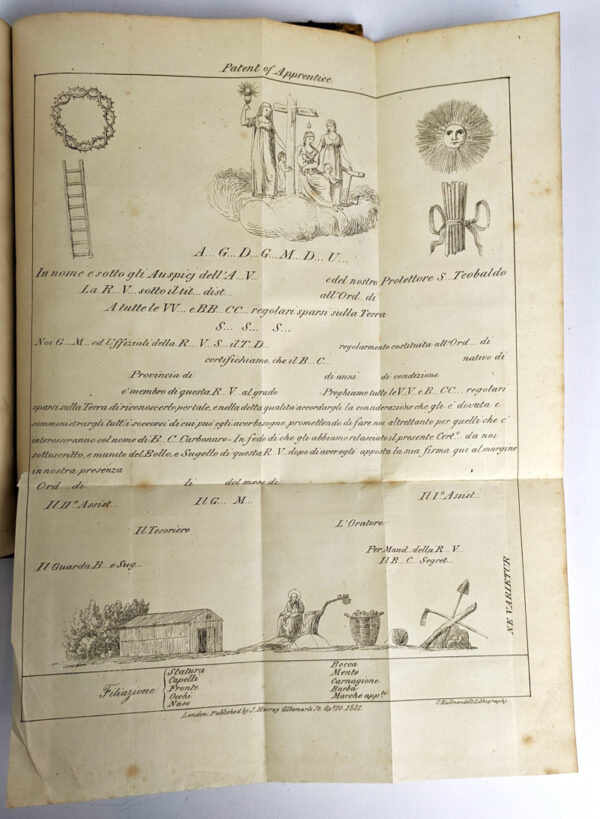 Patent of Apprentice.
A... G... D... G... M... D... U...
In nome e sotto gli Auspicj dell'A... V... e del nostro Protettore S... Teobaldo
La R... V... sotto il tit... dist... all'Ord... di
A tutte le VV... e BB... CC... regolari sparsi sulla Terra
S... S... S...
Noi G... M... ed Uffiziali della R... V... S... il T... D... regolarmente costituita all'Ord... di
certifichiamo, che il B... C... nativo di
Provincia di di anni di condizione
e' membro di questa R... V... al grado Preghiamo tutte le V.V... e B... CC... regolari
sparsi sulla Terra di riconoscerlo per tale, e nella detta qualita' accordargli la considerazione che gli e' dovuta e
somministrargli tutt'i soccorsi di cui puo' egli aver bisogno, promettendo di fare noi altrettanto per quelli che c'
interesseranno col nome di B... C... Carbonaro - In fede di che gli abbiamo rilasciato il presente Cert.o da noi
sottoscritto, e munito del Bollo, e Sugello di questa R... V... dopo di aver egli apposta la sua firma qui al margine
in nostra presenza
Ord... di li del mese di
Il II.o Assist... Il G... M... Il I.o Assist...
Il Tesoriere L'Oratore
Per Mand... della R... V...
Il Guarda B... e Sug... Il B... C... Segret...
NE VARIETUR
Filiazione
Statura Bocca
Capelli Mento
Fronte Carnagione
Occhi Barba
Naso Marche app.ti
London: Published by J. Murray Albemarle St. Ap.l 10. 1821.
C. Hullmandel's Lithography